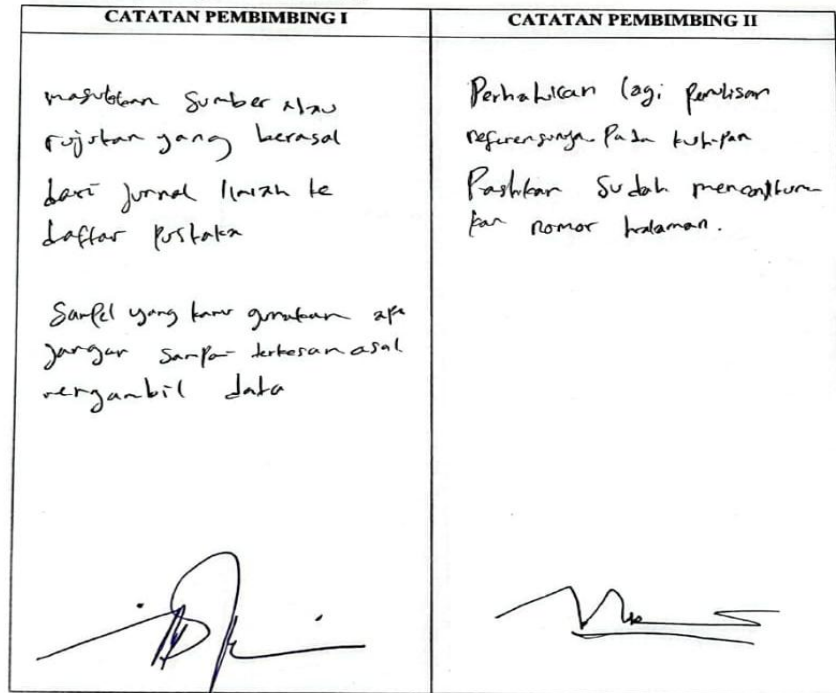 CATATAN PEMBIMBING I
masukkan Sumber atau
rujukan yang berasal
dari jurnal Ilmiah ke
daftar pustaka
Sampel yang kamu gunakan apa
jangan sampai terkesan asal
mengambil data
CATATAN PEMBIMBING II
Perhatikan lagi penulisan
referensinya Pada kutipan
Pastikan Sudah mencantum
kan nomor halaman.